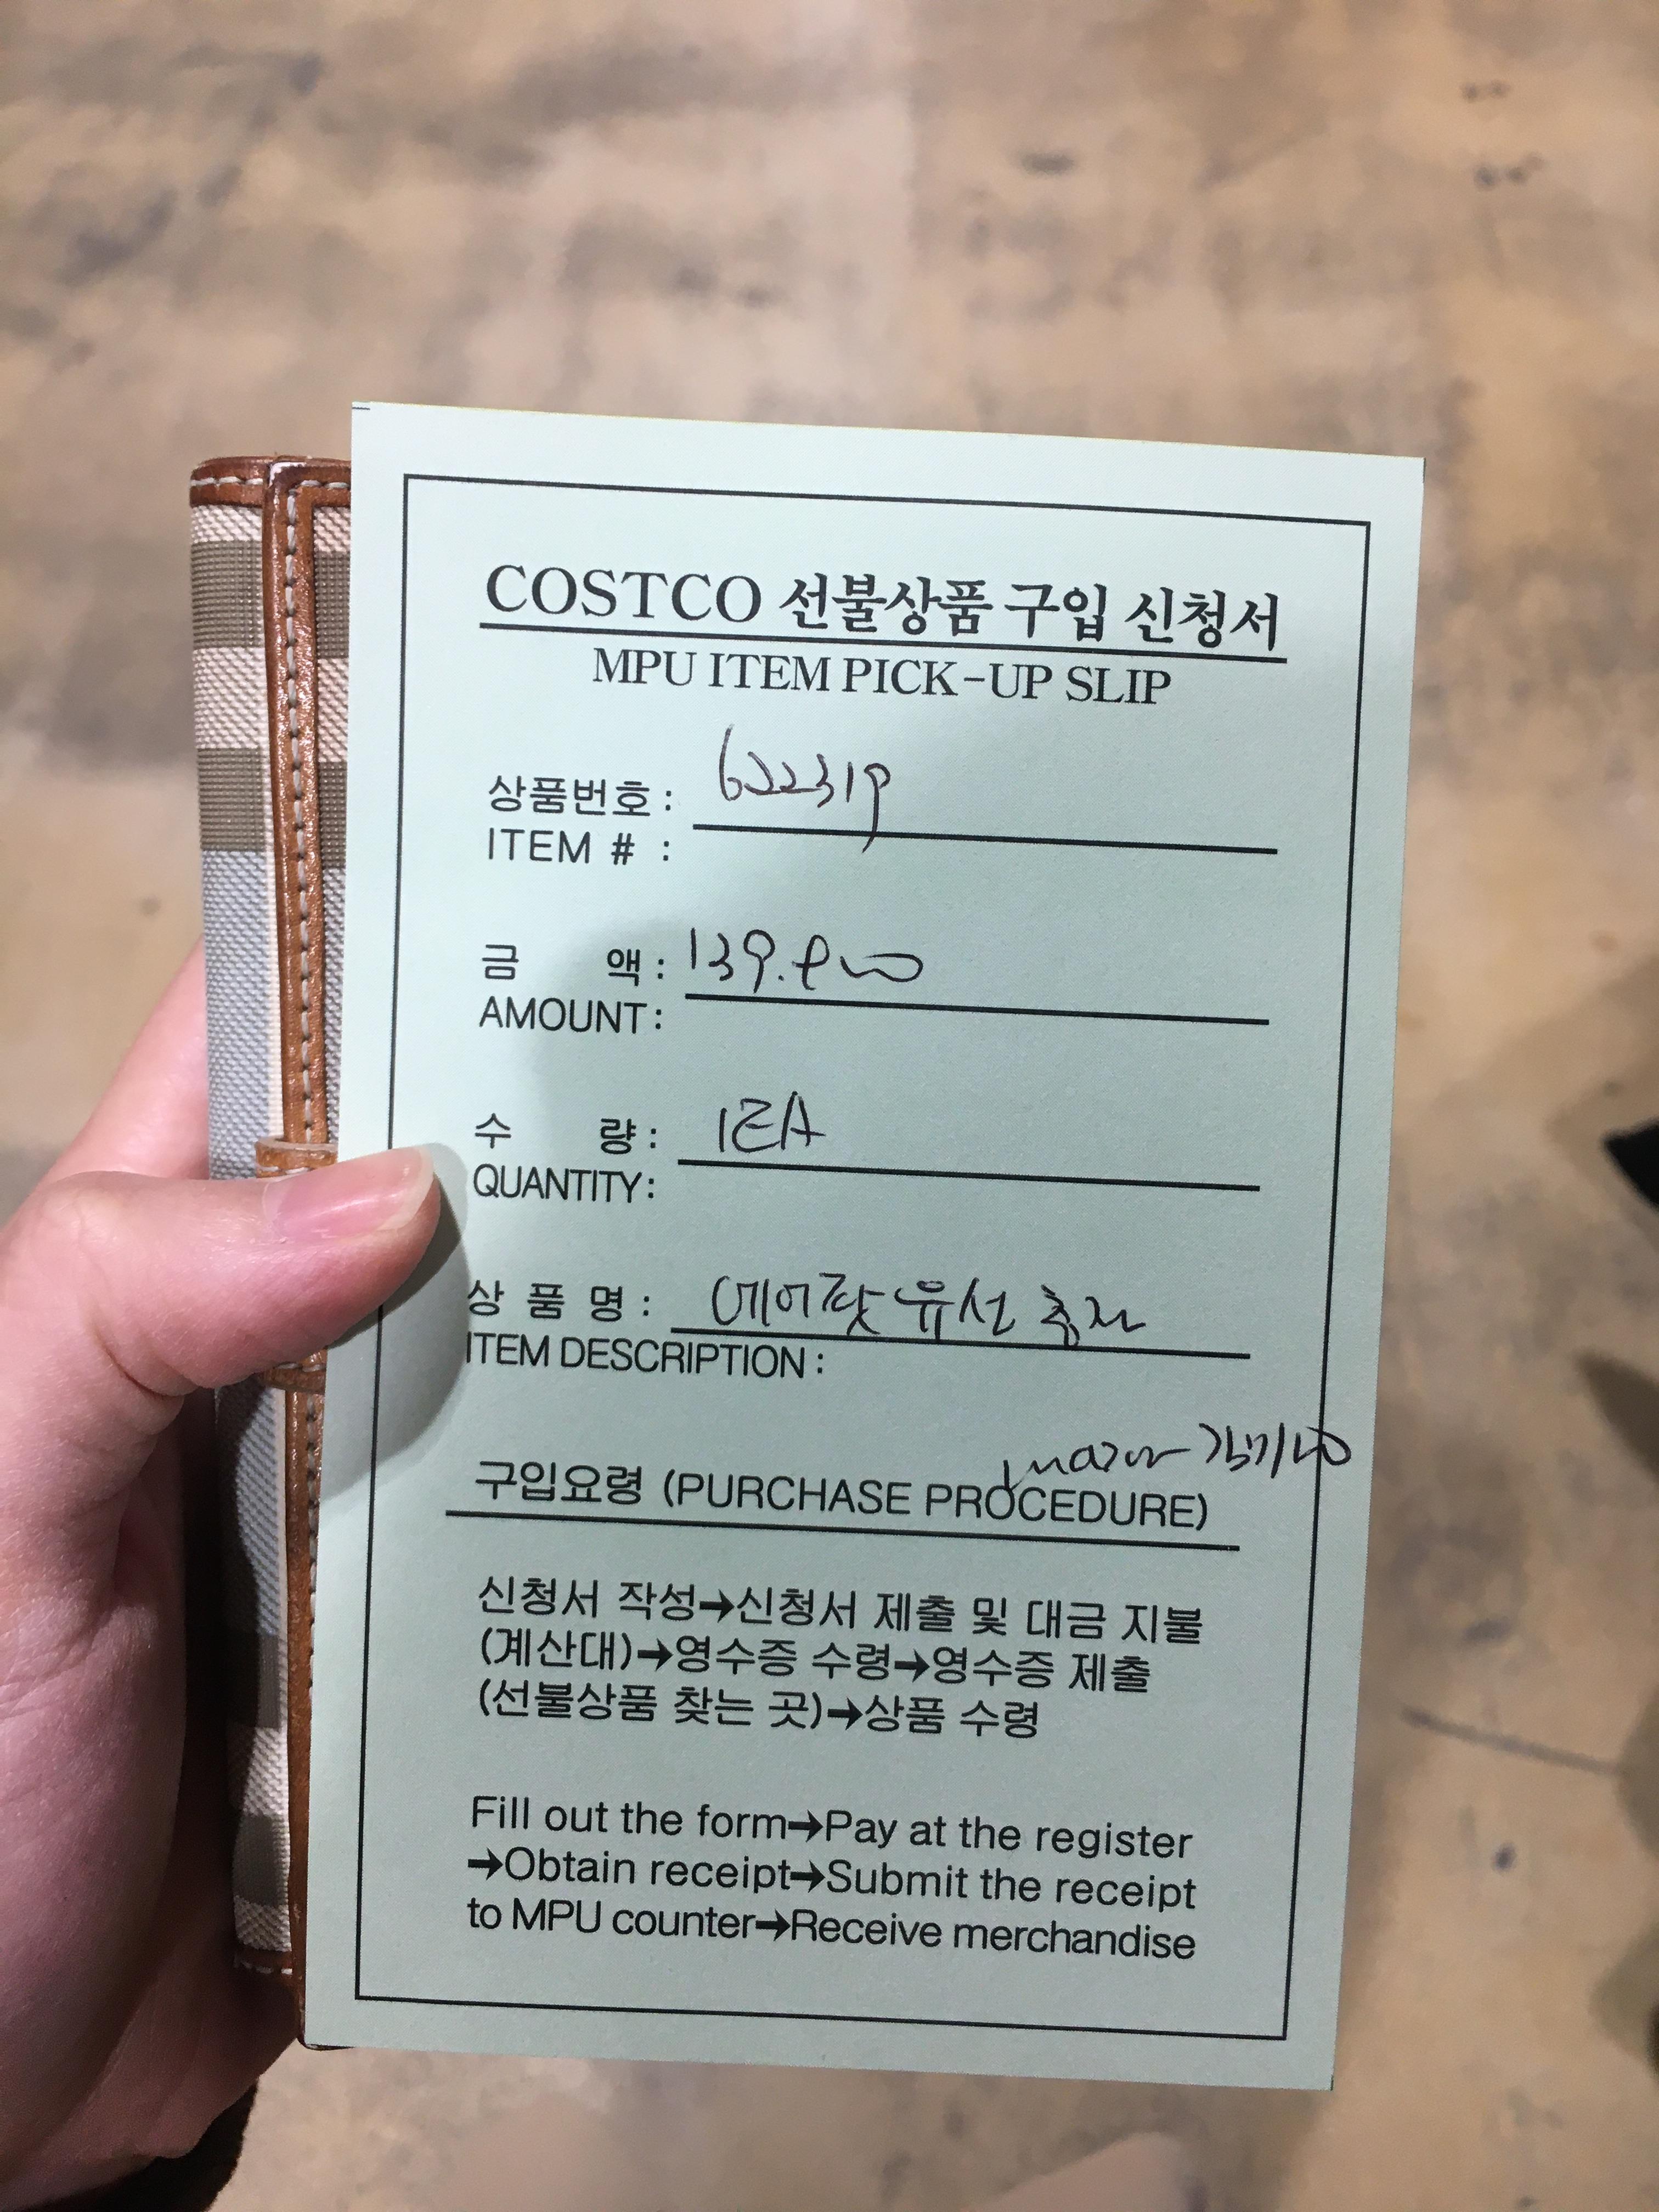 COSTCO 선불상품 구입 신청서
MPU ITEM PICK-UP SLIP
상품번호: 622319
ITEM # :
금 액: 139.900
AMOUNT:
수 량: 1EA
QUANTITY:
상 품 명: 에어팟 유선 충전
ITEM DESCRIPTION:
구입요령 (PURCHASE PROCEDURE)
신청서 작성→신청서 제출 및 대금 지불
(계산대)→영수증 수령→영수증 제출
(선불상품 찾는 곳)→상품 수령
Fill out the form→Pay at the register
→Obtain receipt→Submit the receipt
to MPU counter→Receive merchandise